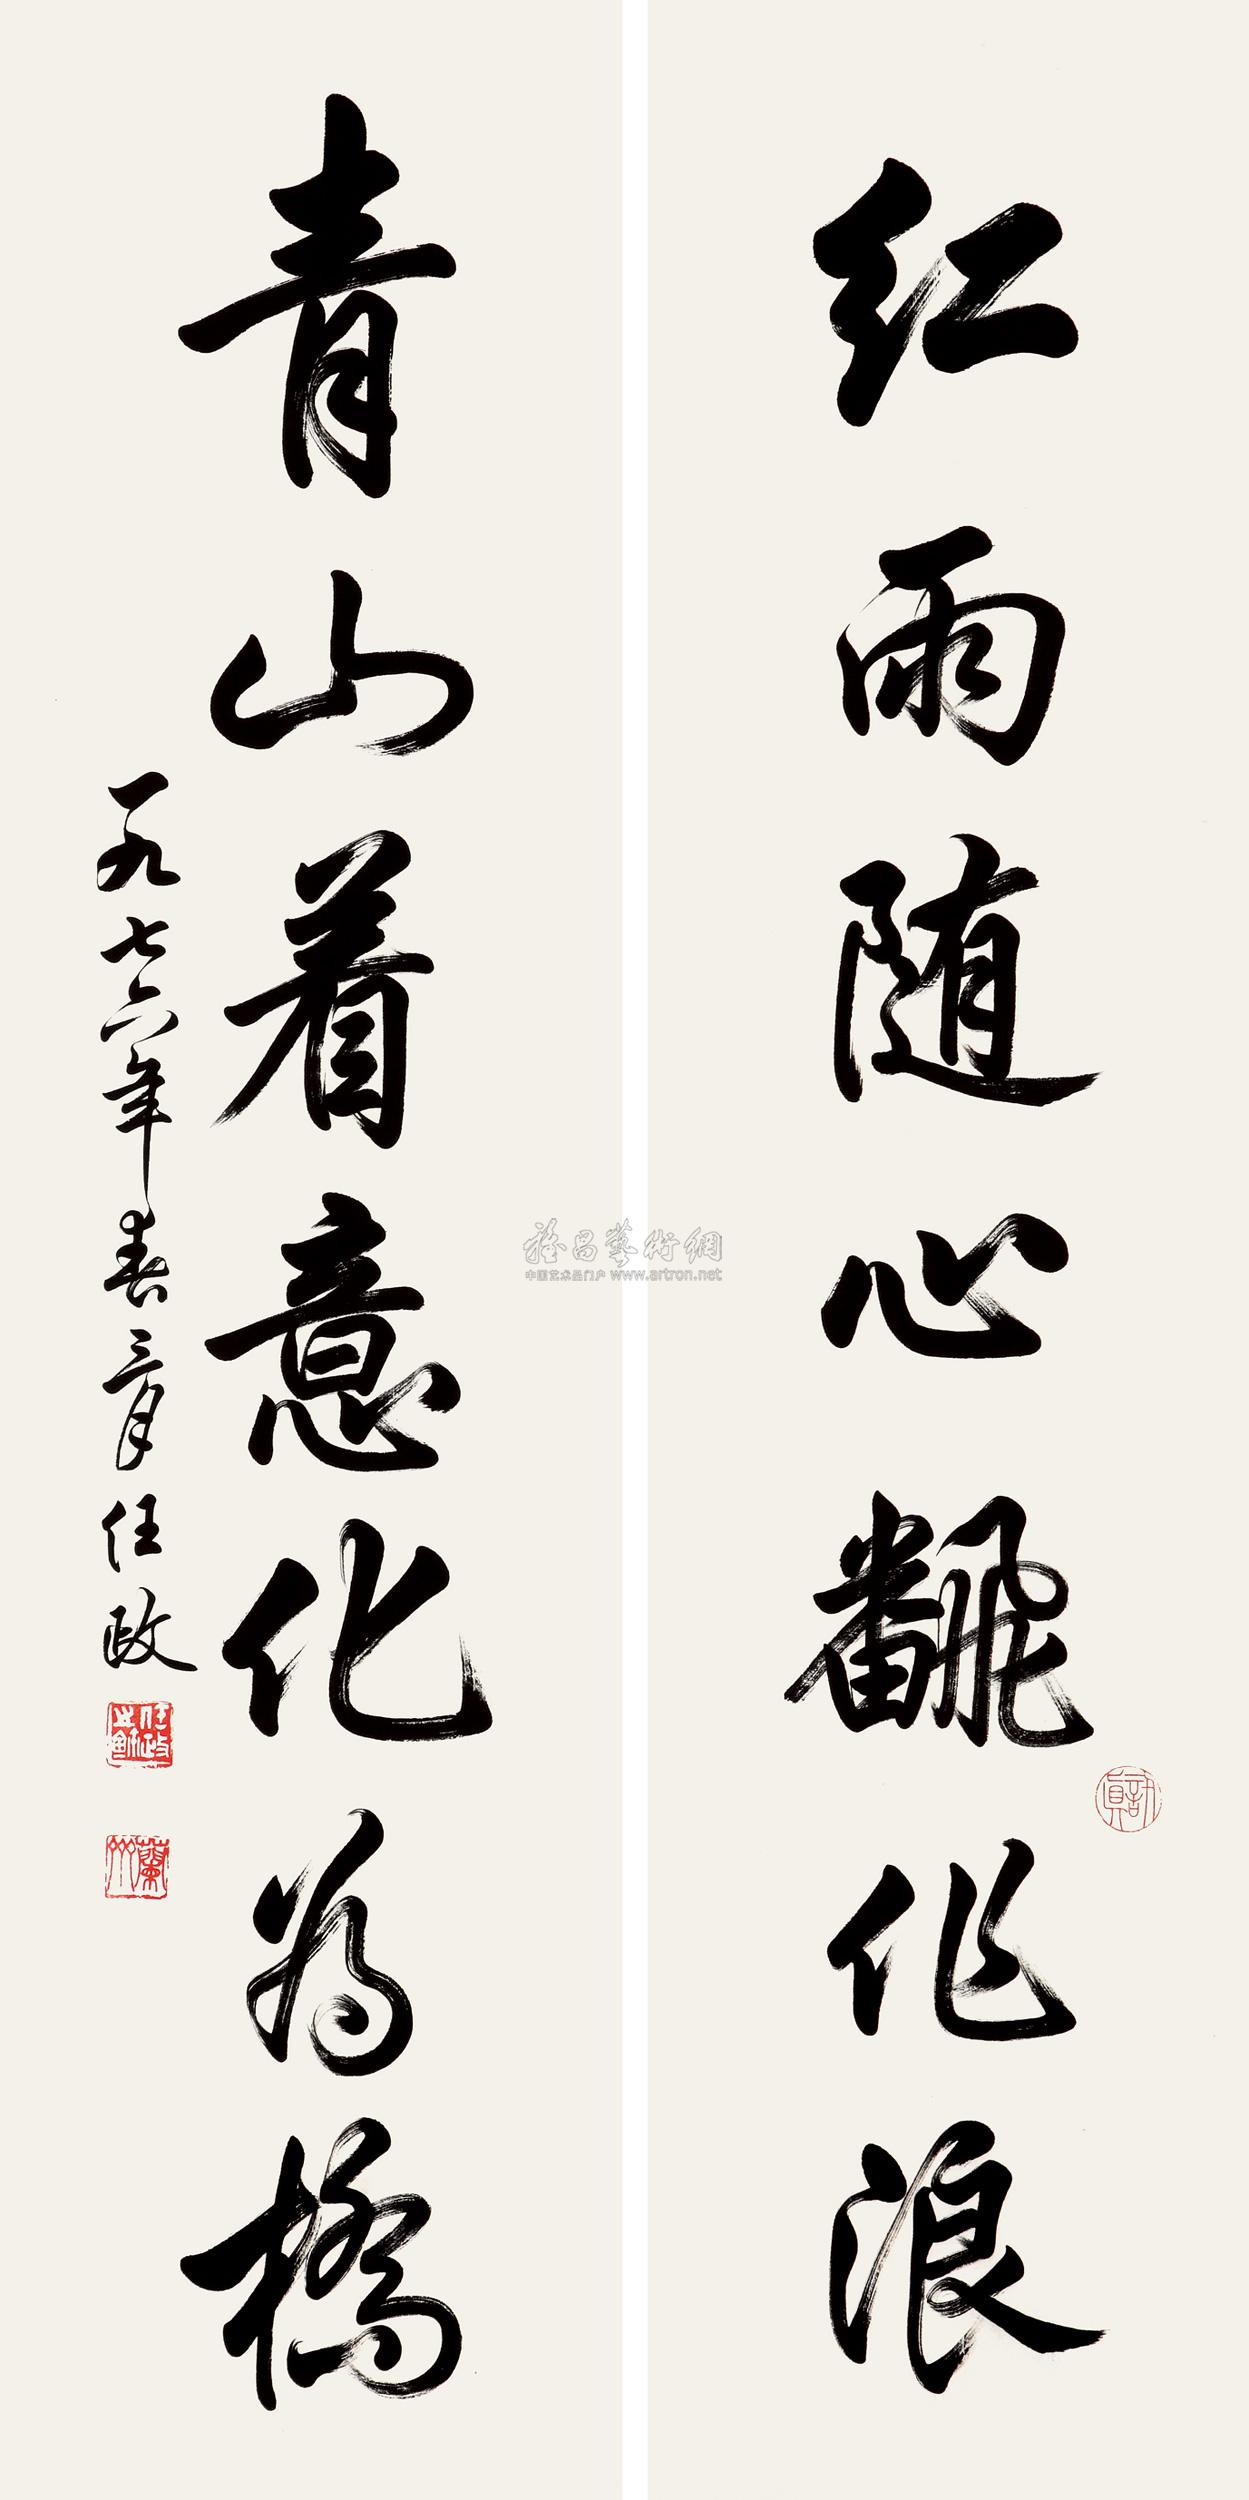 红雨随心飜作浪
青山着意化为橋
一九七六年春三月任政
雅昌藝術網
中国艺术品门户 www.artron.net